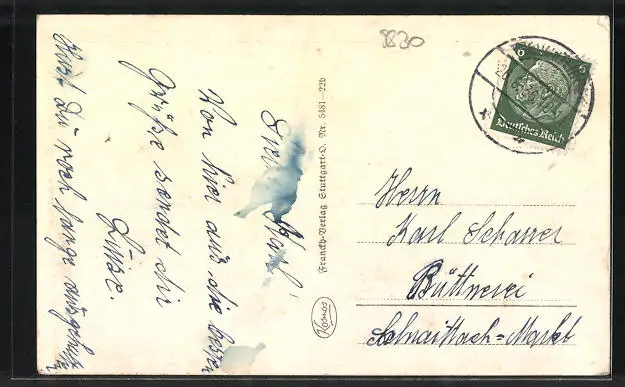 8830
6
Deutsches Reich
Karl!
Von hier aus die besten
Grüße sendet dir
Luise.
Hast du noch lange ausgehalten
Franckh-Verlag Stuttgart-O. Nr. 5481—22b
Kosmos
Herrn
Karl Scharrer
Büttnerei
Schnaittach-Markt